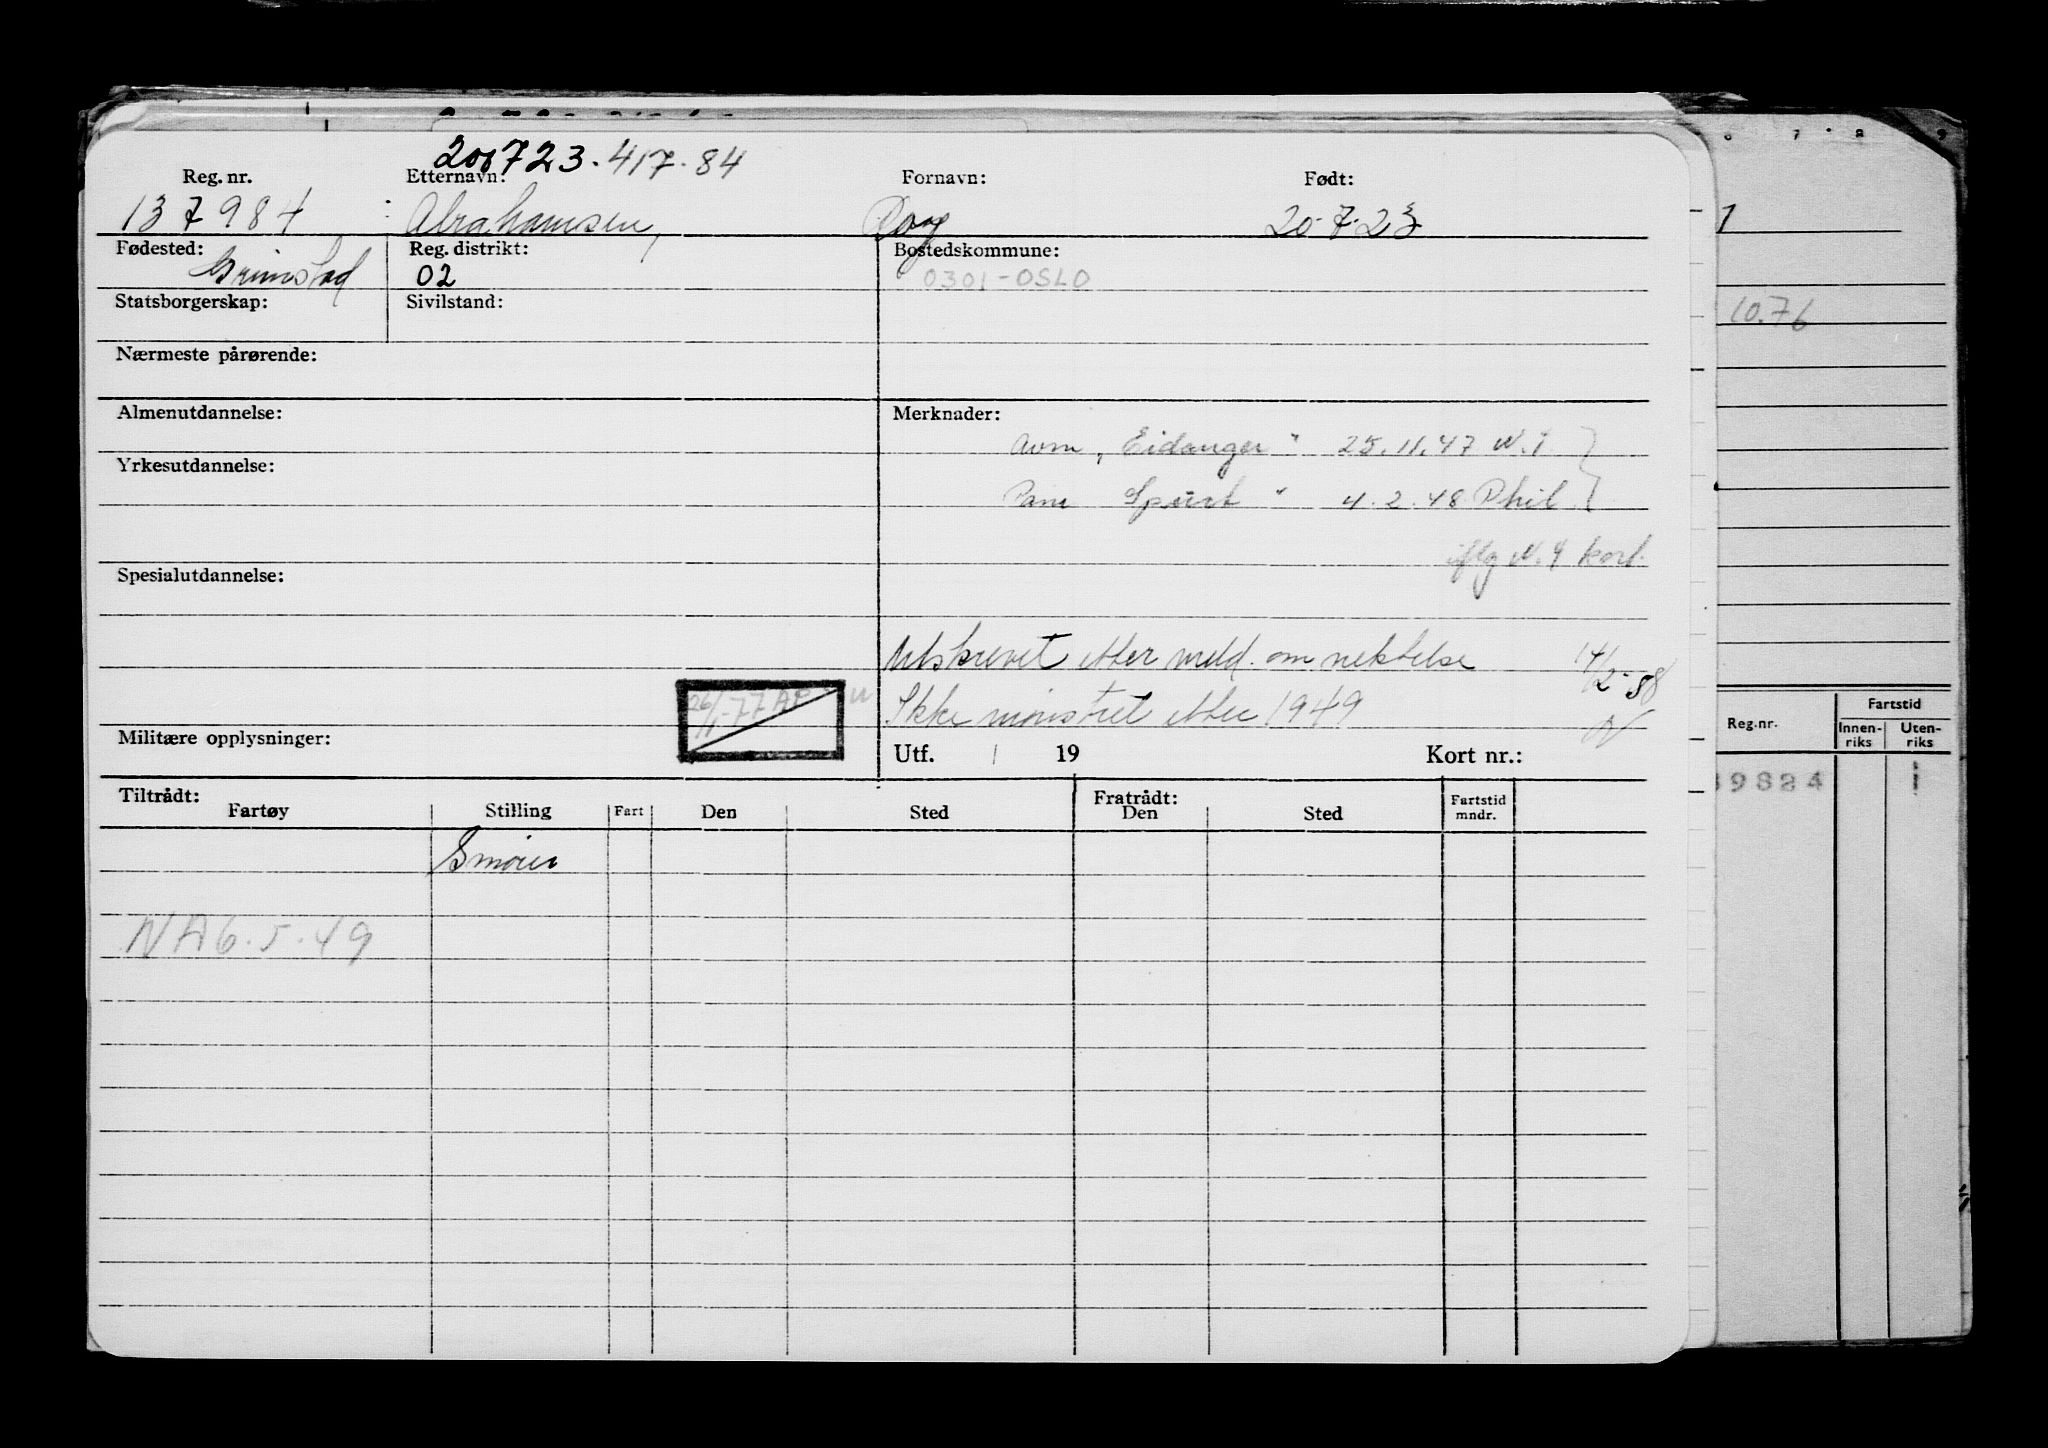 200723.417.84
Reg. nr. Etternavn: Fornavn: Født:
137984 Abrahamsen, Dag 20.7.23
Fødested: Reg. distrikt: Bostedskommune:
Grimstad 02 0301-OSLO
Statsborgerskap: Sivilstand:
10.76
Nærmeste pårørende:
Almenutdannelse: Merknader:
Avm „Eidanger" 25.11.47 N.Y
Yrkesutdannelse:
Påm Spurt " 4.2.48 Phil.
iflg N.Y kort.
Spesialutdannelse:
Utskrevet etter meld. om nektelse 14/2-58
26/11-77 Ikke mønstret etter 1949 N
Militære opplysninger: Utf. / 19 Kort nr.:
Reg.nr. Fartstid
Innen-riks Uten-riks
9824 1
Tiltrådt: Fratrådt:
Fartøy Stilling Fart Den Sted Den Sted Fartstid mndr.
Smører
NA 6.5.49